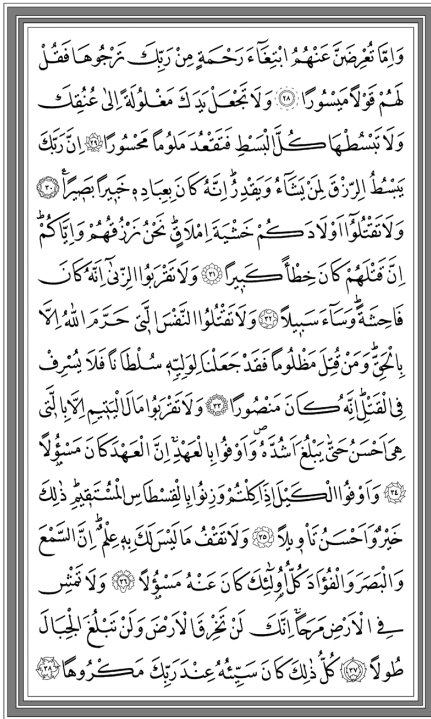 وَاِمَّا تُعْرِضَنَّ عَنْهُمُ ابْتِغَٓاءَ رَحْمَةٍ مِنْ رَبِّكَ تَرْجُوهَا فَقُلْ
لَهُمْ قَوْلًا مَيْسُورًا ﴿٢٨﴾ وَلَا تَجْعَلْ يَدَكَ مَغْلُولَةً اِلٰى عُنُقِكَ
وَلَا تَبْسُطْهَا كُلَّ الْبَسْطِ فَتَقْعُدَ مَلُومًا مَحْسُورًا ﴿٢٩﴾ اِنَّ رَبَّكَ
يَبْسُطُ الرِّزْقَ لِمَنْ يَشَٓاءُ وَيَقْدِرُۜ اِنَّهُ كَانَ بِعِبَادِهٖ خَبٖيرًا بَصٖيرًا۟ ﴿٣٠﴾
وَلَا تَقْتُلُٓوا اَوْلَادَكُمْ خَشْيَةَ اِمْلَاقٍۜ نَحْنُ نَرْزُقُهُمْ وَاِيَّاكُمْۜ
اِنَّ قَتْلَهُمْ كَانَ خِطْـًٔا كَبٖيرًا ﴿٣١﴾ وَلَا تَقْرَبُوا الزِّنٰٓى اِنَّهُ كَانَ
فَاحِشَةًۜ وَسَٓاءَ سَبٖيلًا ﴿٣٢﴾ وَلَا تَقْتُلُوا النَّفْسَ الَّتٖي حَرَّمَ اللّٰهُ اِلَّا
بِالْحَقِّۜ وَمَنْ قُتِلَ مَظْلُومًا فَقَدْ جَعَلْنَا لِوَلِيِّهٖ سُلْطَانًا فَلَا يُسْرِفْ
فِي الْقَتْلِۜ اِنَّهُ كَانَ مَنْصُورًا ﴿٣٣﴾ وَلَا تَقْرَبُوا مَالَ الْيَتٖيمِ اِلَّا بِالَّتٖي
هِيَ اَحْسَنُ حَتّٰى يَبْلُغَ اَشُدَّهُࣕ وَاَوْفُوا بِالْعَهْدِۚ اِنَّ الْعَهْدَ كَانَ مَسْؤُ۫لًا
﴿٣٤﴾ وَاَوْفُوا الْكَيْلَ اِذَا كِلْتُمْ وَزِنُوا بِالْقِسْطَاسِ الْمُسْتَقٖيمِۜ ذٰلِكَ
خَيْرٌ وَاَحْسَنُ تَأْوٖيلًا ﴿٣٥﴾ وَلَا تَقْفُ مَا لَيْسَ لَكَ بِهٖ عِلْمٌۜ اِنَّ السَّمْعَ
وَالْبَصَرَ وَالْفُؤَادَ كُلُّ اُو۬لٰٓئِكَ كَانَ عَنْهُ مَسْؤُ۫لًا ﴿٣٦﴾ وَلَا تَمْشِ
فِي الْاَرْضِ مَرَحًاۚ اِنَّكَ لَنْ تَخْرِقَ الْاَرْضَ وَلَنْ تَبْلُغَ الْجِبَالَ
طُولًا ﴿٣٧﴾ كُلُّ ذٰلِكَ كَانَ سَيِّئُهُ عِنْدَ رَبِّكَ مَكْرُوهًا ﴿٣٨﴾